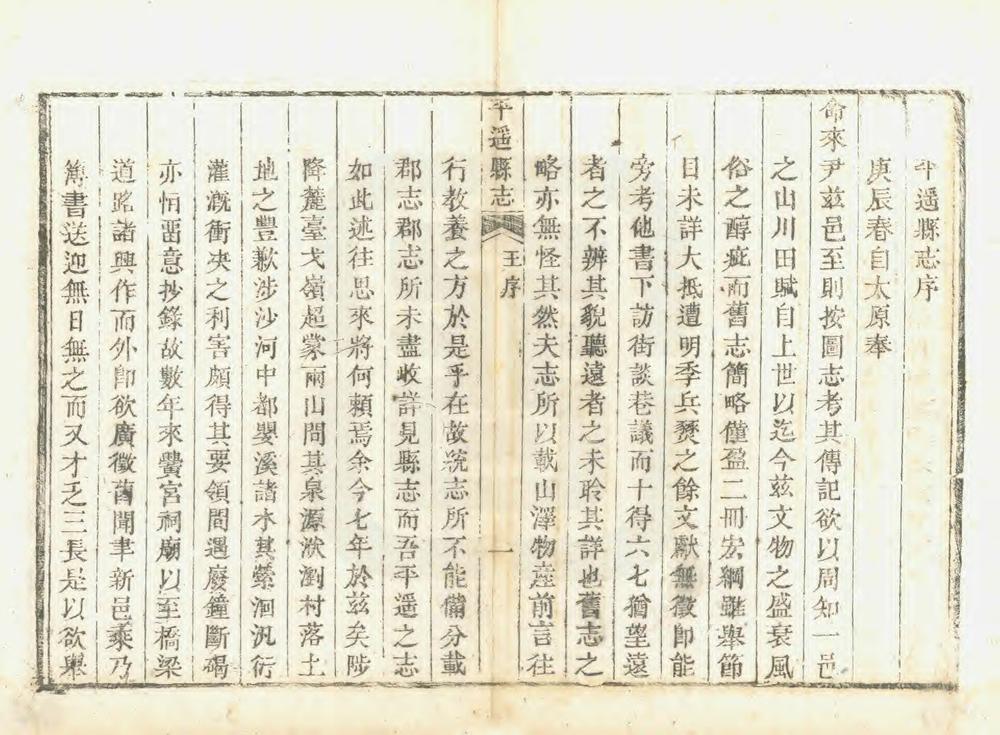 平遥縣志序
庚辰春自太原奉
命來尹茲邑至則按圖志考其傳記欲以周知一邑
之山川田賦自上世以迄今茲文物之盛衰風
俗之醇疵而舊志簡略僅盈二冊宏綱雖舉節
目未詳大抵遭明季兵燹之餘文獻無徵即能
旁考他書下訪街談巷議而十得六七猶望遠
者之不辨其貌聽遠者之未聆其詳也舊志之
略亦無怪其然夫志所以載山澤物產前言往
平遥縣志
王序
一
行教養之方於是乎在故統志所不能備分載
郡志郡志所未盡收詳見縣志而吾平遥之志
如此述往思來將何賴焉余今七年於茲矣陟
降麓臺戈嶺超蒙雨山間其泉源洑瀏村落土
地之豐歉涉沙河中都嬰溪諸水其縈洄汎衍
灌漑衝决之利害頗得其要領間遇廢鐘斷碣
亦悄畱意抄錄故數年來黌宮祠廟以至橋梁
道路諸興作而外卽欲廣徵舊聞聿新邑乘乃
簿書送迎無日無之而又才乏三長是以欲舉